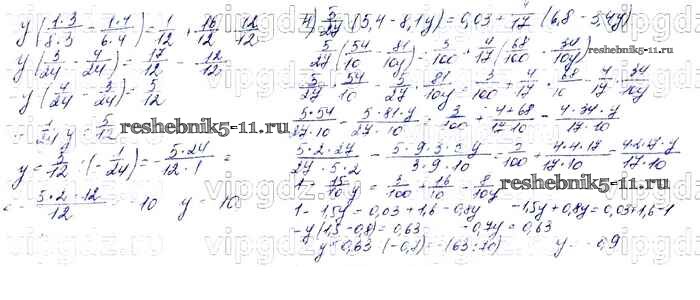 y(1·3/8·3 − 1·4/6·4) = 1/12 + 16/12 − 12/12
y(3/24 − 4/24) = 17/12 − 12/12
−y(4/24 − 3/24) = 5/12
−1/24 y = 5/12
y = 5/12 : (−1/24) = −5·24/12·1 =
= −5·2·12/12 = −10 y = −10
4) 5/27 (5,4 − 8,1y) = 0,03 + 4/17 (6,8 − 3,4y)
5/27 (54/10 − 81/10 y) = 3/100 + 4/17 (68/10 − 34/10 y)
5/27 · 54/10 − 5/27 · 81/10 y = 3/100 + 4/17 · 68/10 − 4/17 · 34/10 y
5·54/27·10 − 5·81·y/27·10 = 3/100 + 4·68/17·10 − 4·34·y/17·10
5·2·27/27·5·2 − 5·9·3·3y/3·9·10 = 3/100 + 4·4·17/17·10 − 4·2·17·y/17·10
1 − 15/10 y = 3/100 + 16/10 − 8/10 y
1 − 1,5y = 0,03 + 1,6 − 0,8y −1,5y + 0,8y = 0,03 + 1,6 − 1
−y(1,5 − 0,8) = 0,63 −0,7y = 0,63
y = 0,63 : (−0,7) = −(63:70) y = −0,9
reshebnik5-11.ru
reshebnik5-11.ru
reshebnik5-11.ru
reshebnik5-11.ru